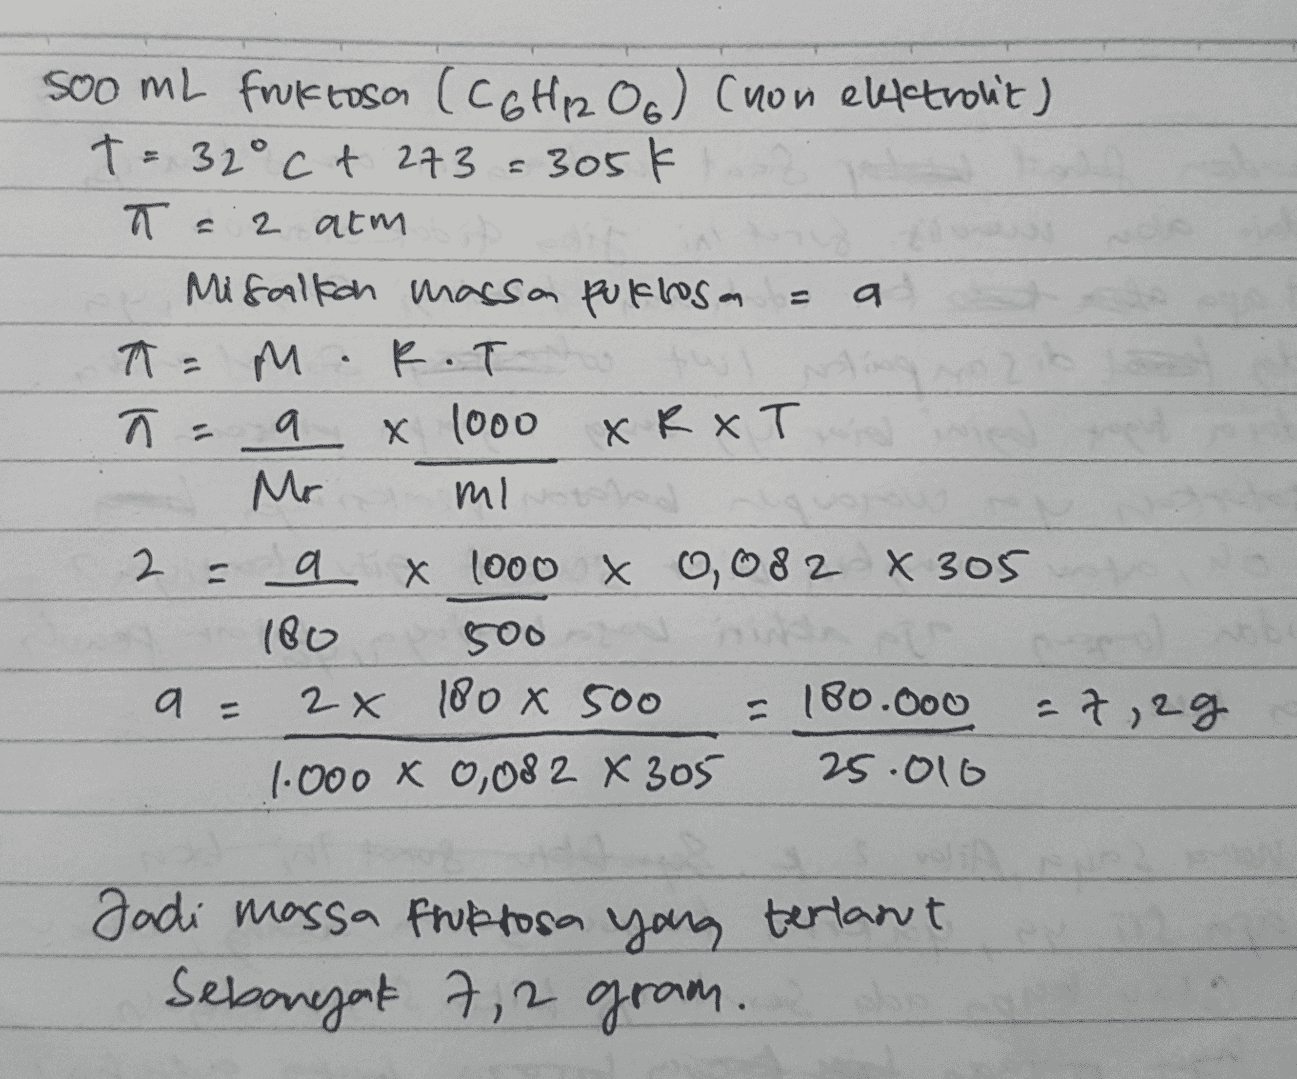 500 mL fruktosa (C6H12O6) (non elektrolit)
t = 32°C + 273 = 305 K
π = 2 atm
Misalkan massa fruktosa = a
π = M . R . T
π = a/Mr x 1000/ml x R x T
2 = a/180 x 1000/500 x 0,082 x 305
a = 2 x 180 x 500 / 1.000 x 0,082 x 305 = 180.000/25.010 = 7,2 g
Jadi massa fruktosa yang terlarut
Sebanyak 7,2 gram.